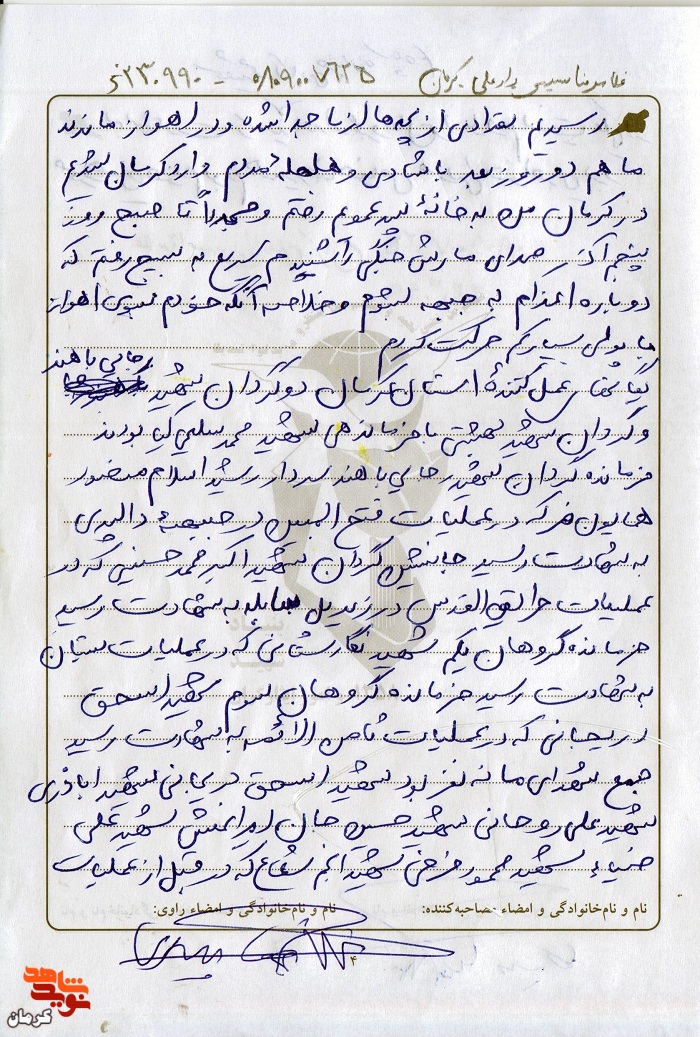 غلامرضا سیدی یزدانعلی کرمان ۰۸۰۹۰۰۷۶۲۵ - ۲۳۰۹۹۰
رسیدیم تعدادی از بچه ها از ما جدا شده و در اهواز ماندند
ما هم دو روز بعد با شادی و هلهله مردم وارد کرمان شدیم
در کرمان من به خانهٔ پسر عمویم رفتم و تا صبح روز
پنجم آذر صدای مارش جنگی را شنیدم سریع به بسیج رفتم که
دوباره اعزام به جبهه بشوم و خلاصه آنکه خودم بسوی اهواز
با پولی بسیار کم حرکت کردم
یگانهای عمل کنندهٔ استان کرمان دو گردان شهید رجایی باهنر
و گردان شهید بهشتی با فرماندهی شهید محمد سلیمی کیا بودند
فرمانده گردان شهید رجایی باهنر سردار رشید اسلام منصور
همایون فر که در عملیات فتح المبین در جبههٔ دالپری
به شهادت رسید جانشین گردان شهید اکبر محمد حسینی که در
عملیات طریق القدس در زیر پل سابله به شهادت رسید
فرمانده گروهان یکم شهید نگارستانی که در عملیات بستان
به شهادت رسید فرمانده گروهان سوم شهید اسحق
دریجانی که در عملیات ثامن الائمه به شهادت رسید
جمع شهدای ما نه نفر بود شهید اسحق دریجانی شهید اباذری
شهید علی روحانی شهید حسین خان ایرانمنش شهید علی
ضیاء شهید محمود فرخی شهید انجم شعاع که در قبل از عملیات
نام و نام‌خانوادگی و امضاء مصاحبه‌کننده: نام و نام‌خانوادگی و امضاء راوی:
۴
نوید شاهد
کرمان